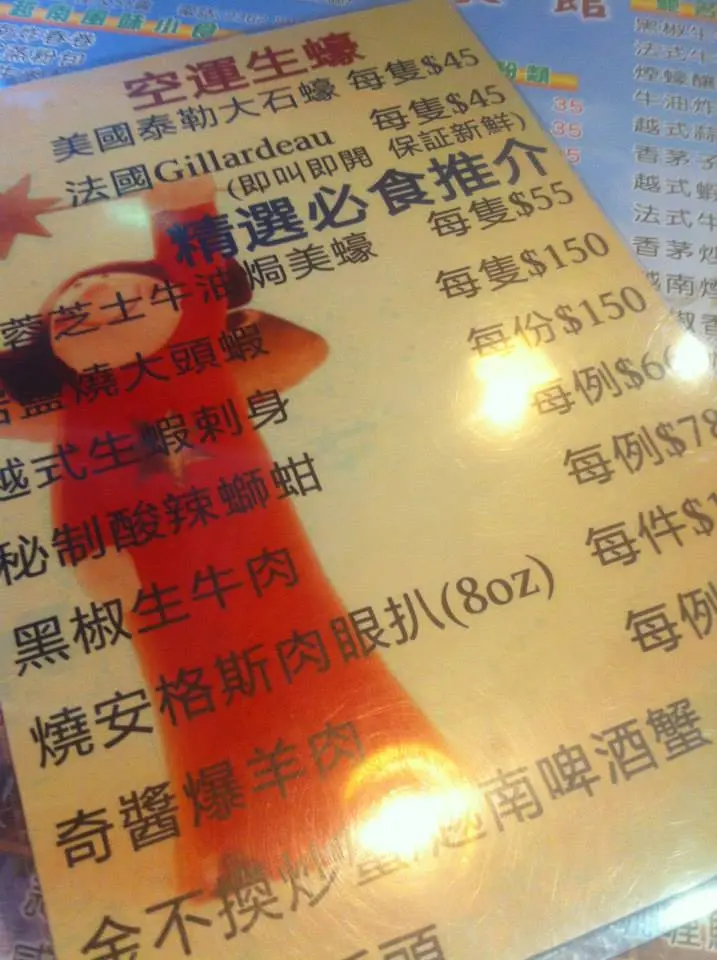 越南風味小食
空運生蠔
美國泰勒大石蠔 每隻$45
法國Gillardeau 每隻$45
(即叫即開 保証新鮮)
精選必食推介
蓉芝士牛油焗美蠔 每隻$55
燒大頭蝦 每隻$150
越式生蝦刺身 每份$150
秘制酸辣螄蚶 每例$6
黑椒生牛肉 每例$78
燒安格斯肉眼扒(8oz) 每件$1
奇醬爆羊肉 每例
金不換炒 越南啤酒蟹
館
粉類
35
35
5
黑椒牛
法式牛
煙蠔釀
牛油炸
越式蒜
香茅子
越式蝦
法式牛
香茅炒
越南煙
椒香